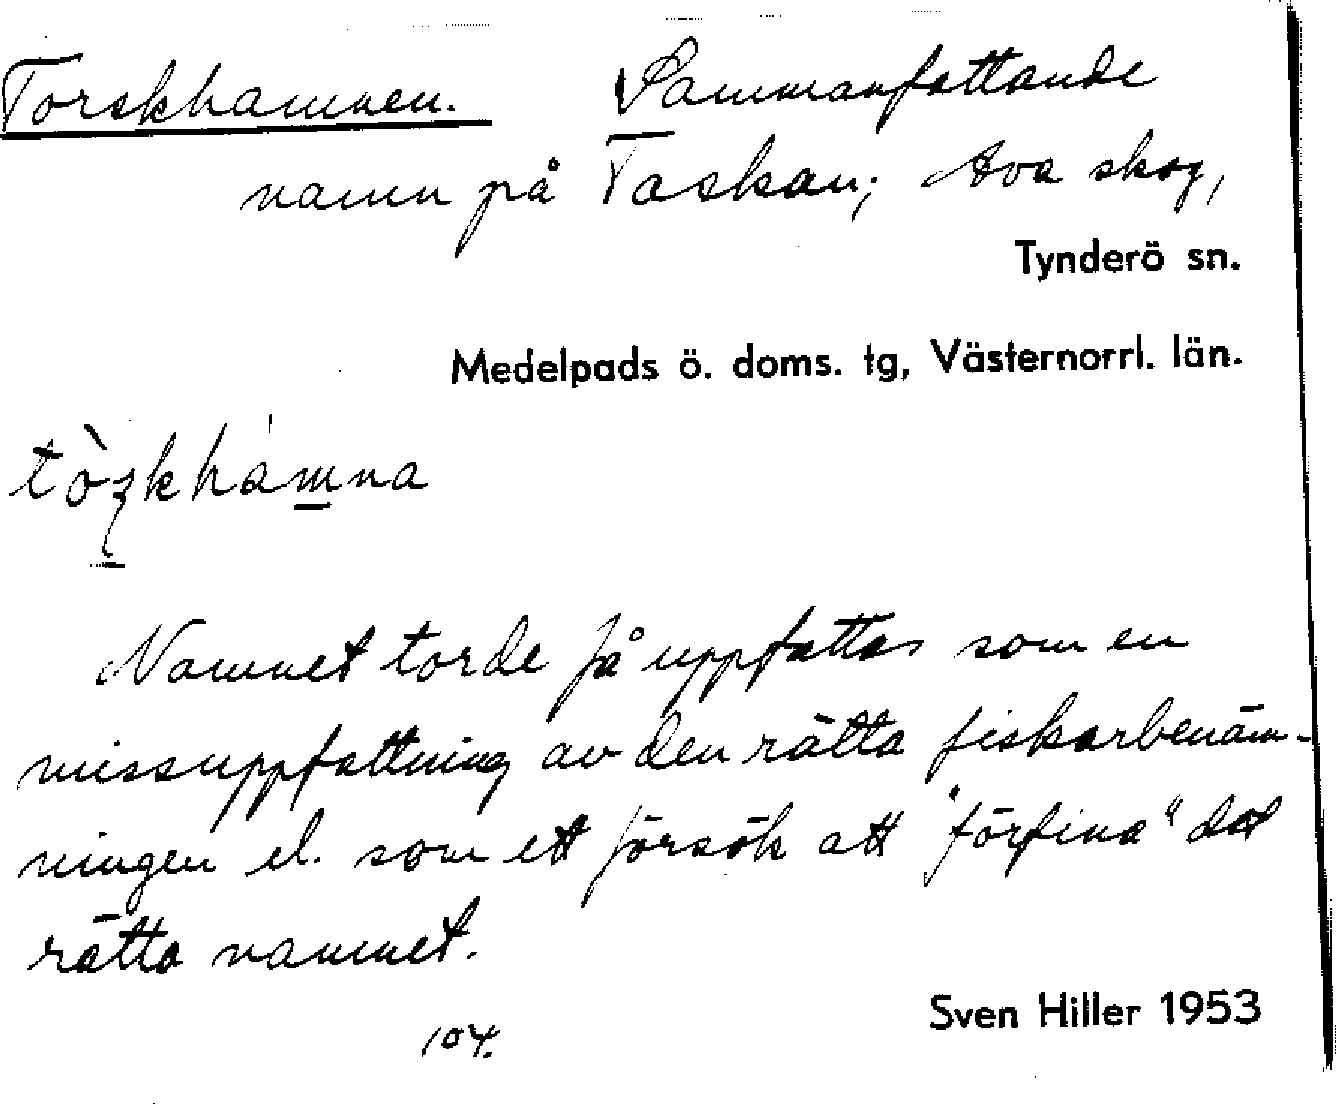 Torskhamnen. Sammanfattande
namn på Taskan; Ava skog,
Tynderö sn.
Medelpads ö. doms. tg, Västernorrl. län.
Namnet torde få uppfattas som en
missuppfattning av den rätta fiskarbenäm-
ningen el. som ett försök att "förfina" det
rätta namnet.
Sven Hiller 1953
104.